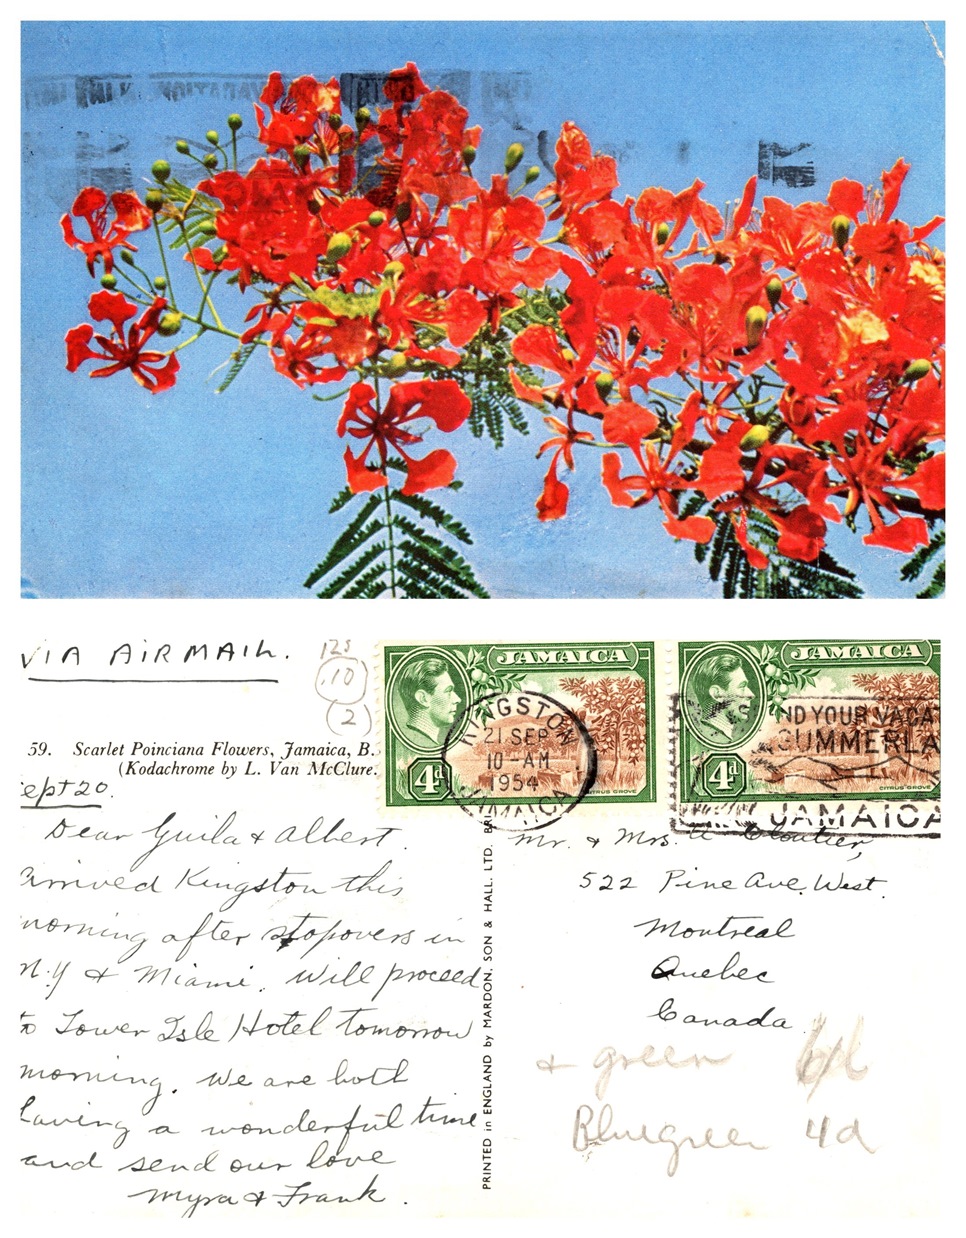 VIA AIRMAIL.
125
10
(2)
JAMAICA
4d
CITRUS GROVE
KINGSTON
21 SEP
10-AM
1954
JAMAICA
JAMAICA
4d
CITRUS GROVE
ND YOUR VACA
SUMMERLA
JAMAICA
59. Scarlet Poinciana Flowers, Jamaica, B.
(Kodachrome by L. Van McClure.
ept 20.
Dear Guila & Albert.
Arrived Kingston this
morning after stopovers in
N.Y & Miami. Will proceed
to Tower Isle Hotel tomorrow
morning. We are both
having a wonderful time
and send our love
Myra & Frank.
PRINTED in ENGLAND by MARDON, SON & HALL. LTD. BRI
Mr. & Mrs. A Cloutier,
522 Pine Ave. West.
Montreal
Quebec
Canada
+ green
Bluegreen 4d